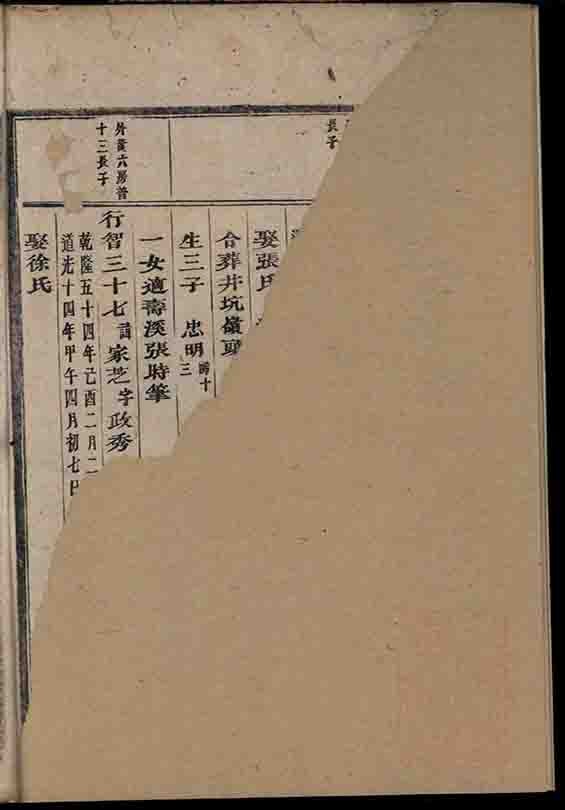 長子
娶張氏
合葬井坑嶺頭
生三子 忠明
三
一女適壽溪張時肇
外黃六房普
十三長子
行智三十七諱家芝字政秀
乾隆五十四年己酉二月二
道光十四年甲午四月初七日
娶徐氏